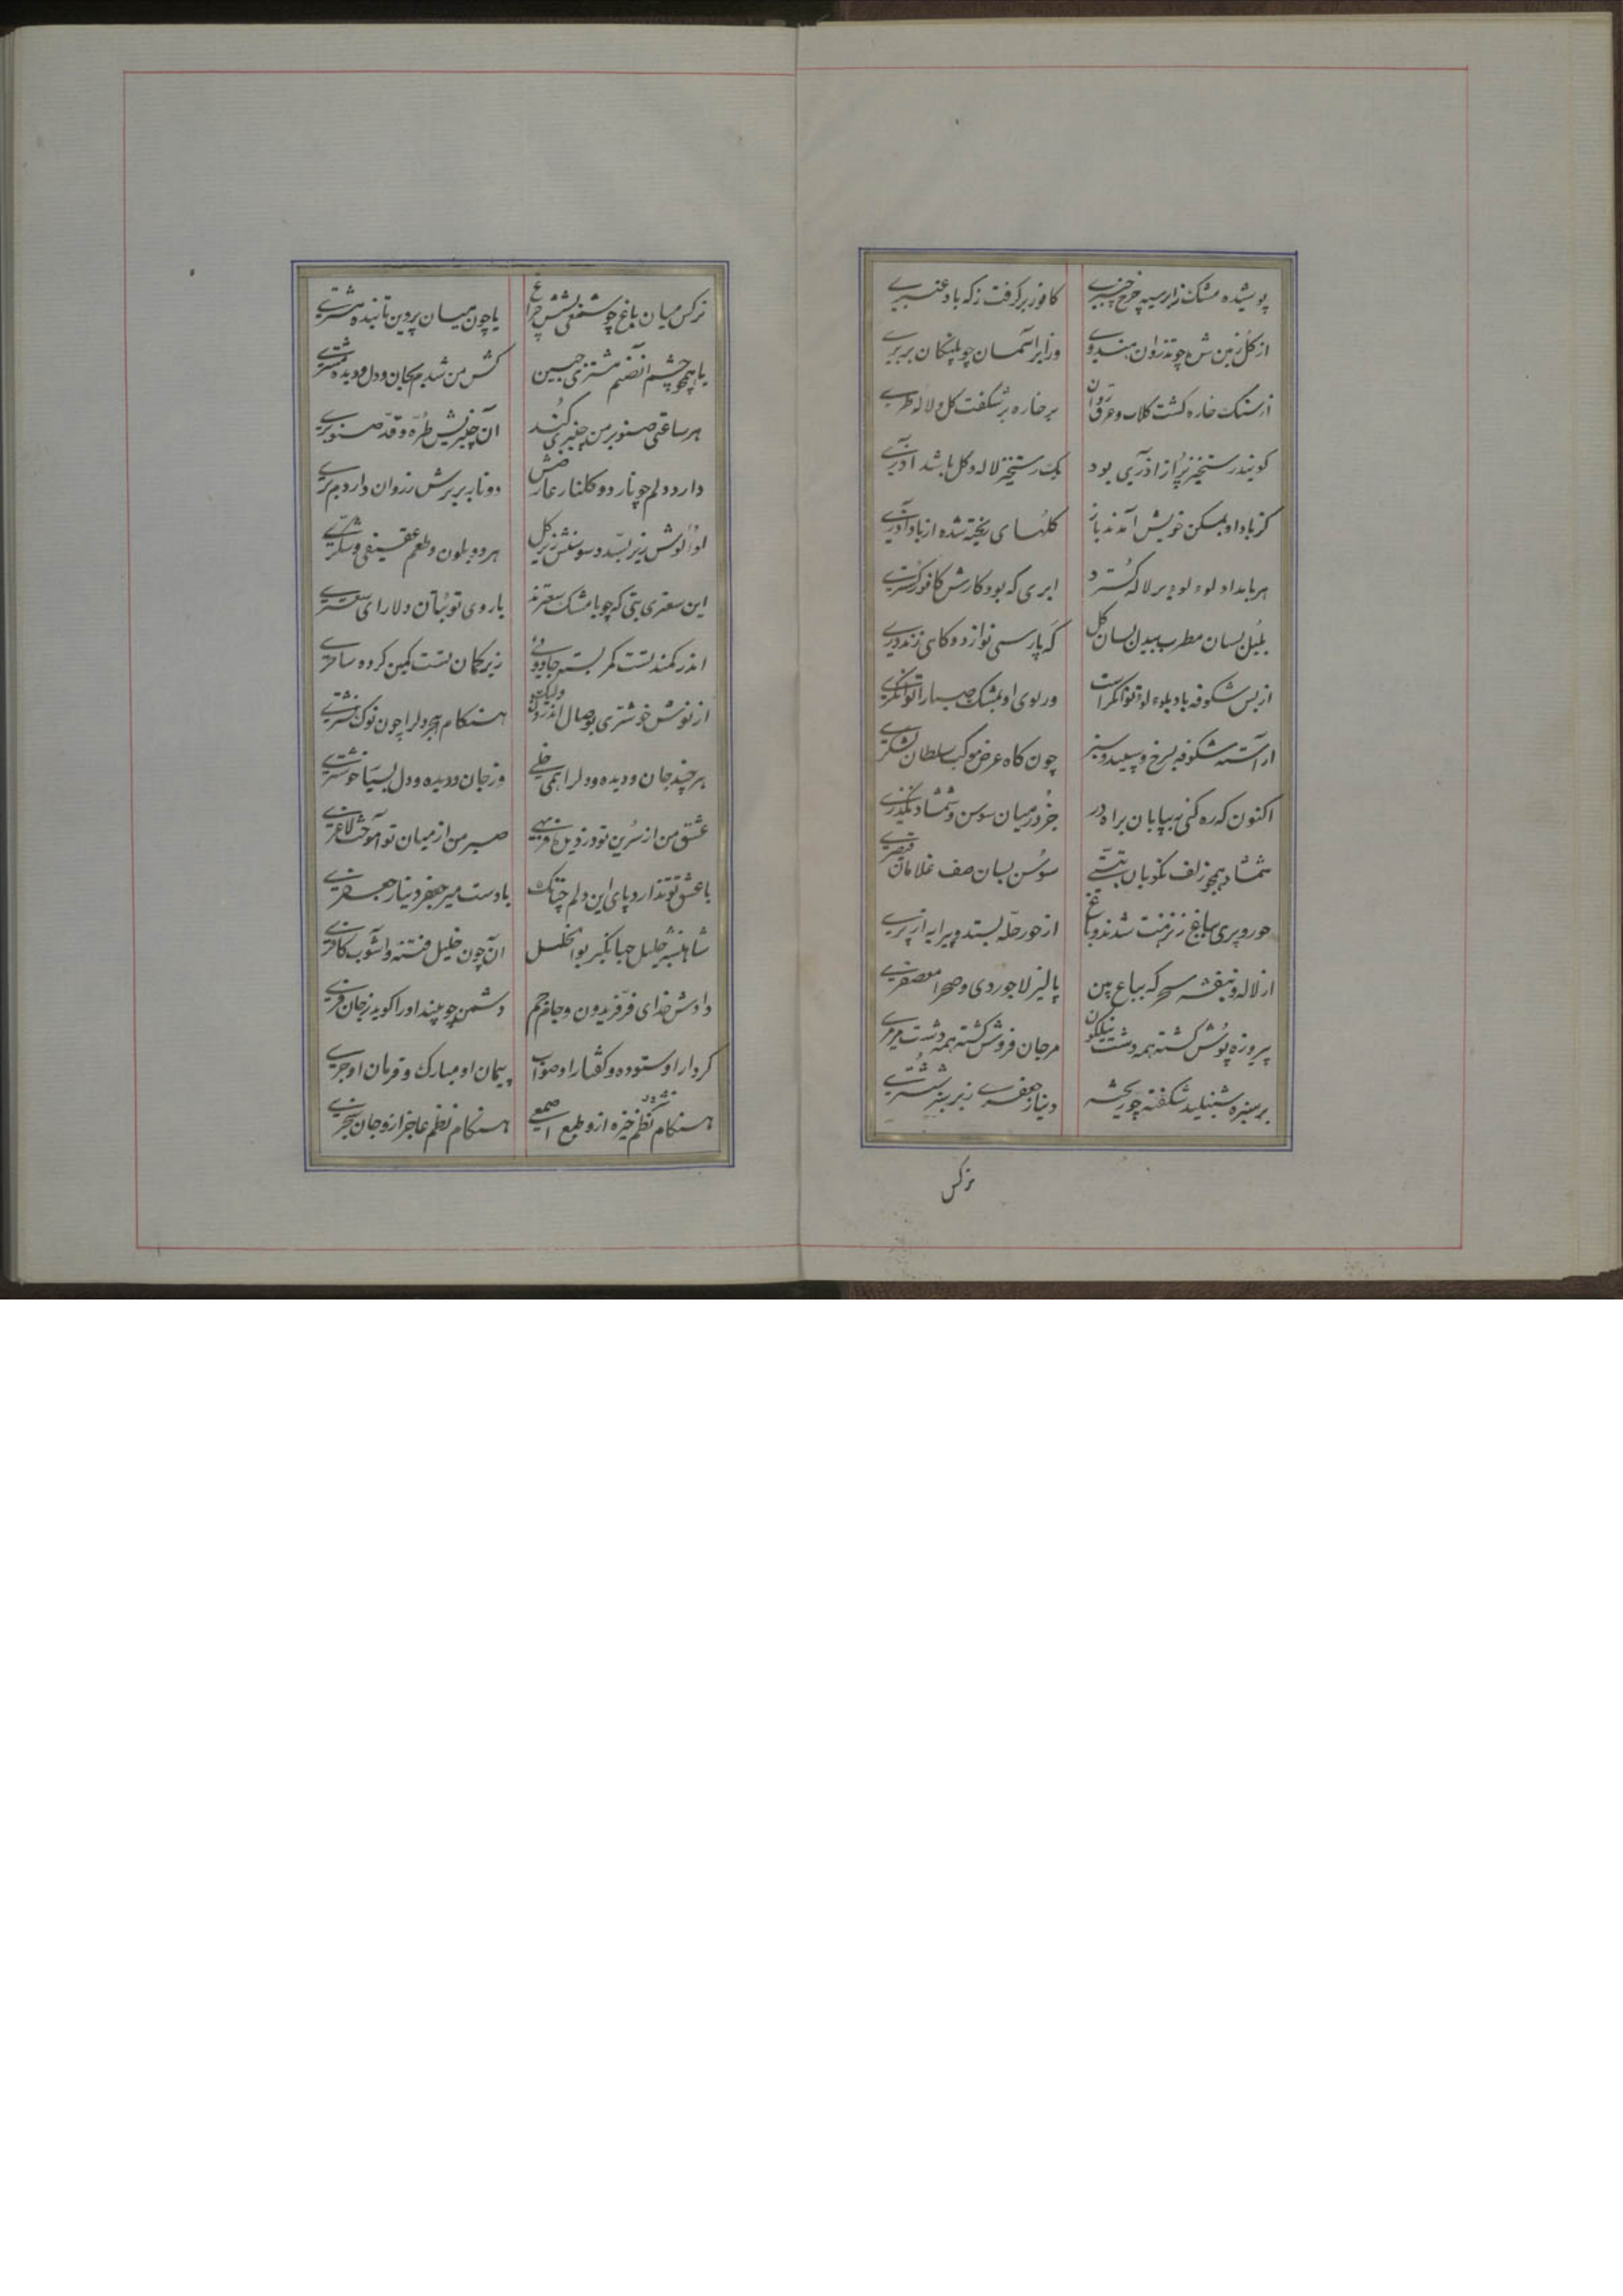 پوشیده مشک زابر سیه چرخ چنبری کافور برگرفت ز که باد عنبری
از گل زمین شده چو تذروان هندوی وز ابر آسمان چو پلنگان بربری
از سنک خاره کشت کلاب و عرق روان بر خاره بر شکفت کل و لاله طری
کویند رستخیز پر از آذری بود یک رستخیز لاله و کل باشد آذری
کز باد او بمسکن خویش آمدند باز کلهای ریخته شده از باد آذری
هر بامداد لوء لوء بر لاله کسترد ابری که بود کارش کافور کستری
بلبل بسان مطرب بیدل بسان کل که پارسی نوازد و کاهی زند دری
از بس شکوفه باد بلوء لوء توانکر است ور بوی او بمشک صبا را توانکری
آراسته شکوفه بسرخ و سپید و سبز چون کاه عرض موکب سلطان لشکری
اکنون که ره کنی به بیابان براه در جز در میان سوسن و شمشاد نکذری
شمشاد همچو زلف نکویان بتبتی سوسن بسان صف غلامان قیصری
حور و پری بباغ ز نزهت شدند و باغ از حور حله بستد و پیرایه از پری
از لاله و بنفشه سحرکه بباغ بین پالیز لاجوردی و صحرا معصفری
پیروزه پوش کشته همه دشت نیلکون مرجان فروش کشته همه دشت مرمری
بر سبزه شنبلید شکفته چو ریخته دینار جعفری زبر سبز ششتری
نرکس
نرکس میان باغ چو شمعی بشش چراغ یا چون میان پروین تابنده مشتری
یا همچو چشم آن صنم مشتری جبین کش من شدم بجان و دل و دیده مشتری
هر ساعتی صنوبر من چنبری کند آن چنبرینش طره و قد صنوبری
دارد دلم چو نار دو کلنار عارضش دو نار بر برش ز روان دارد م بری
لؤلوش زیر بسد و سوسنش زیر کل هر دو بلون و طعم عقیقی و شکری
این سعتری بتی که چو با مشک سعترند با روی تو بتان دلارای سعتری
اندر کمند تست کمر بسته جادوئی زیر کمان تست کمین کرده ساحری
از نوش خوشتری بوصال اندرون ولیک هنکام هجر دلرا چون نوک نشتری
هر چند جان و دیده و دلرا همی خلی وز جان و دیده و دل بسیار خوشتری
عشق من از سرین تو دزدید فربهی صبر من از میان تو آموخت لاغری
با عشق تو ندارد پای این دلم چنانک با دست میر جعفر دینار جعفری
شاهنشه جلیل جهانکیر بوالخلیل آن چون خلیل فتنه و آشوب کافری
دادش خدای فر فریدون و جام جم دشمن چو بیند او را کوید ز جان فری
کردار او ستوده و کفتار او صواب پیمان او مبارک و فرمان او جری
هنکام نظم خیره ازو طبع اصمعی هنکام نظم عاجز ازو جان بحتری